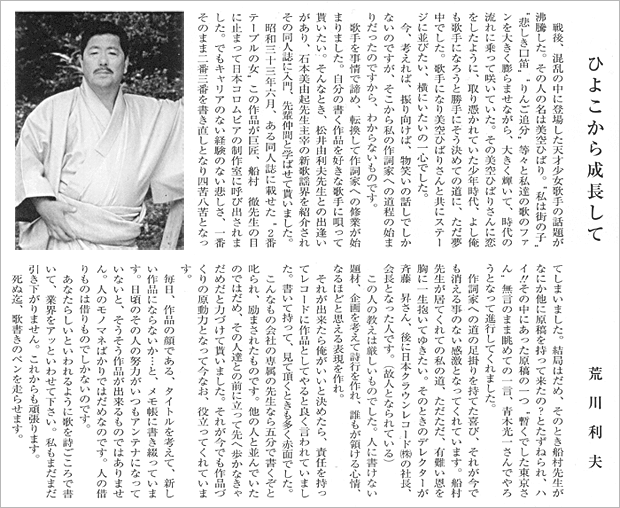 ひよこから成長して
荒川利夫
戦後、混乱の中に登場した天才少女歌手の話題が
沸騰した。その人の名は美空ひばり。〝私は街の子〟
〝悲しき口笛〟〝りんご追分〟等々と私達の歌のファ
ンを大きく膨らませながら、大きく輝いて、時代の
流れに乗って咲いていた。その美空ひばりさんに恋
をしたように、取り憑かれていた少年時代。よし俺
も歌手になろうと勝手にそう決めての道に、ただ夢
中でした。歌手になり美空ひばりさんと共にステー
ジに並びたい、横にいたいの一心でした。
今、考えれば、振り向けば、物笑いの話しでしか
ないのですが、そこから私の作詞家への道程の始ま
りだったのですから、わからないものです。
歌手を事情で諦め、転換して作詞家への修業が始
まりました。自分の書く作品を好きな歌手に唄って
貰いたい。そんなとき、松井由利夫先生との出逢い
があり、石本美由起先生主宰の新歌謡界を紹介され
その同人誌に入門、先輩仲間と学ばせて貰いました。
昭和三十三年六月、ある同人誌に載せた〝２番
テーブルの女〟この作品が巨匠、船村 徹先生の目
に止まって日本コロムビアの制作室に呼び出されま
した。でもキャリアのない経験のない悲しさ、一番
そのまま二番三番を書き直しとなり四苦八苦となっ
てしまいました。結局はだめ、そのとき船村先生が
なにか他に原稿を持って来たの？とたずねられ、ハ
イ‼その中にあった原稿の一つ〝暫くでした東京さ
ん〟無言のまま眺めての一言、青木光一さんでやろ
うとなって進行してくれました。
作詞家への道の足掛りを持てた喜び、それが今で
も消える事のない感激となってくれています。船村
先生が居てくれての私の道、ただただ、有難い恩を
胸に一生抱いてゆきたい。そのときのデレクターが
斉藤 昇さん、後に日本クラウンレコード㈱の社長、
会長となった人です。（故人となられている）
この人の教えは厳しいものでした。人に書けない
題材、企画を考えて詩行を作れ、誰もが頷ける心情、
なるほどと思える表現を作れ。
それが出来たら俺がいいと決めたら、責任を持っ
てレコードに作品としてやると良く言われていまし
た。書いて持って、見て頂くときも多く赤面でした。
こんなもの会社の専属の先生なら五分で書くぞと
叱られ、励まされたものです。他の人と並んでいた
のではだめ、その人達との前に立って先へ歩かなきゃ
だめだと力づけて貰いました。それが今でも作品づ
くりの原動力となって今なお、役立ってくれていま
す。
毎日、作品の顔である、タイトルを考えて、新し
い作品にならないか…と、メモ帳に書き綴っていま
す。日頃のその人の努力がいつもアンテナになって
いないと、そうそう作品が出来るものではありませ
ん。人のモノマネばかりではだめなのです。人の借
りものは借りものでしかないのです。
あなたらしいといわれるように歌を詩ごころで書
いて、業界をアッといわせて下さい。私もまだまだ
引き下がりません。これからも頑張ります。
死ぬ迄、歌書きのペンを走らせます。